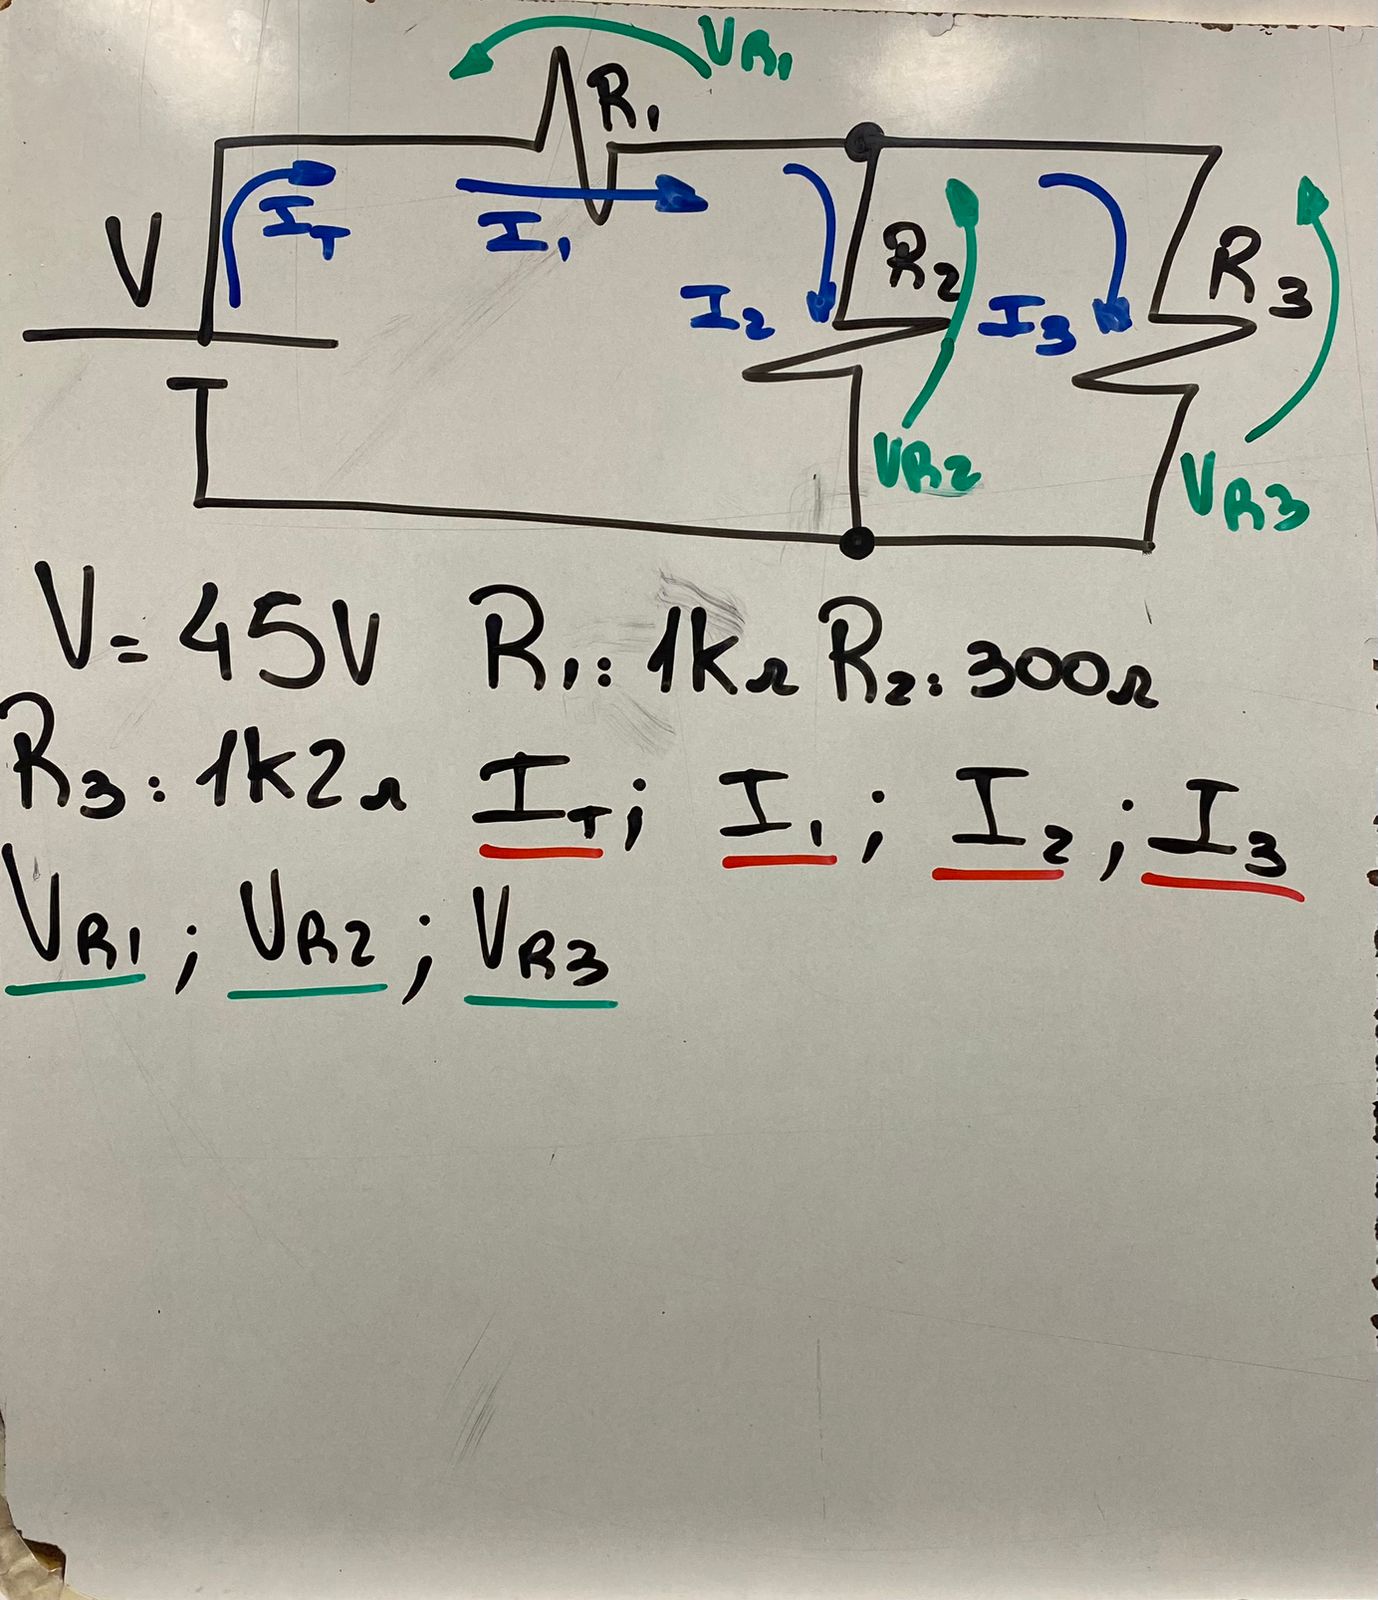 VR1
R1
IT
I1
V
R2
R3
I2
I3
VR2
VR3
V= 45V R1: 1kΩ R2: 300Ω
R3: 1k2Ω IT; I1; I2; I3
VR1; VR2; VR3